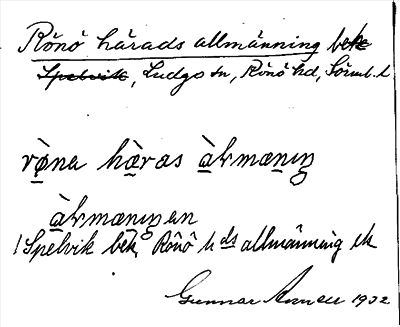 Rönö härads allmänning bek
Spelvik, Ludgo sn, Rönö hd, Sörml. l
rø̀na hæ̀ras àlmænıŋ
àlmænıŋən
/Spelvik bek, Rönö hds allmänning ek
Gunnar 1932